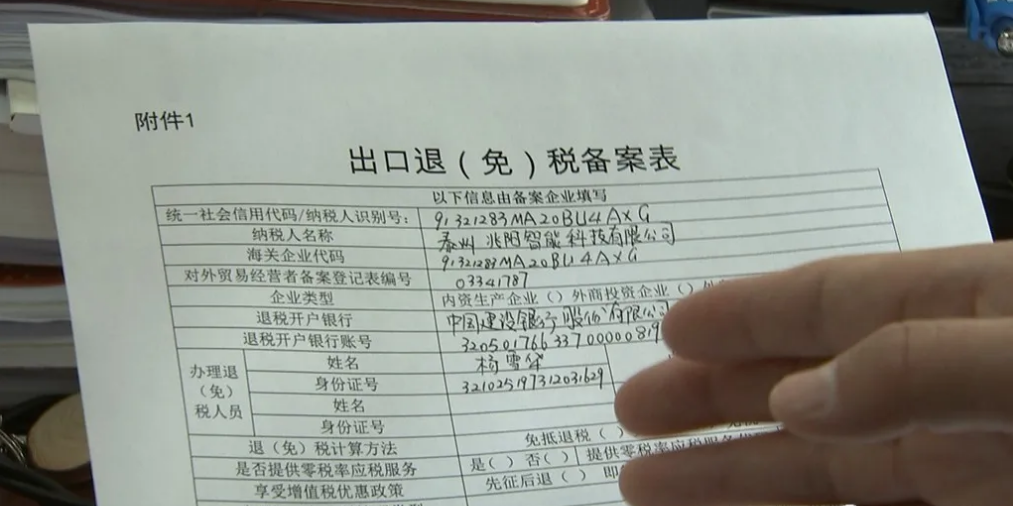 附件1
出口退（免）税备案表
以下信息由备案企业填写
统一社会信用代码/纳税人识别号： 91321283MA20BU4AXG
纳税人名称 泰州兆阳智能科技有限公司
海关企业代码 91321283MA20BU4AXG
对外贸易经营者备案登记表编号 03341787
企业类型 内资生产企业（）外商投资企业（）
退税开户银行 中国建设银行股份有限公司
退税开户银行账号 32050176633700000819
办理退（免）税人员
姓名 杨雪
身份证号 321025197312031629
姓名
身份证号
退（免）税计算方法 免抵退税（）
是否提供零税率应税服务 是（）否（） 提供零税率应税服务
享受增值税优惠政策 先征后退（） 即